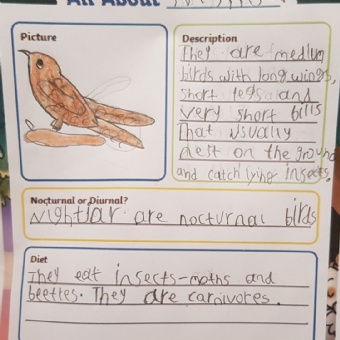 All About
Picture
Description
They are medium
birds with long wings,
short legs and
very short bills
That usually
nest on the ground
and catch lying insects.
Nocturnal or Diurnal?
Nightjar are nocturnal birds
Diet
They eat insects-moths and
beettes. They are carnivores.